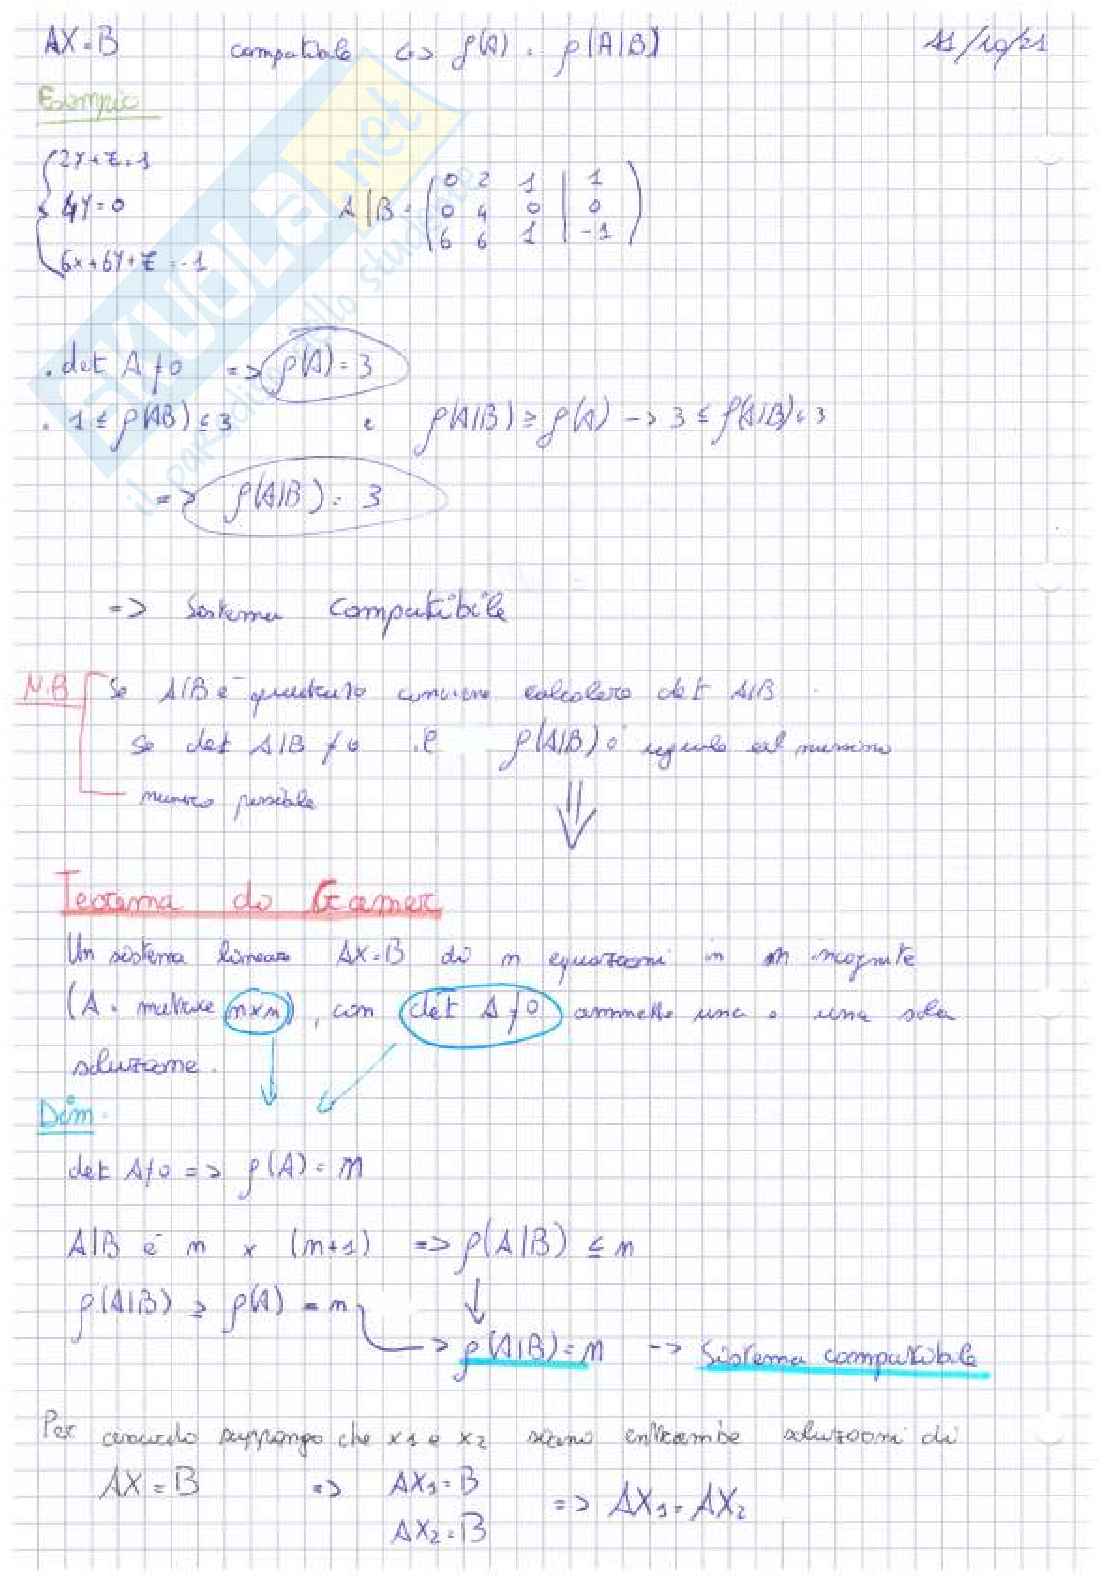 AX = B compatibile <=> ρ(A) = ρ(A|B) 11/10/21
Esempio
{ 2Y + Z = 1
4Y = 0
6X + 6Y + Z = -1
A|B = ( 0 2 1 | 1
0 4 0 | 0
6 6 1 | -1 )
SKUOLA.net
il paradiso dello studente
. det A ≠ 0 => ρ(A) = 3
. 1 ≤ ρ(AB) ≤ 3 e ρ(A|B) ≥ ρ(A) -> 3 ≤ ρ(A|B) ≤ 3
=> ρ(A|B) = 3
=> Sistema Compatibile
N.B Se A|B è quadrato conviene calcolare det A|B
Se det A|B ≠ 0 . ρ(A|B) è uguale al massimo
numero possibile
Teorema di Cramer
Un sistema lineare AX = B di n equazioni in n incognite
(A = matrice n×n), con det A ≠ 0 ammette una e una sola
soluzione.
Dim.
det A ≠ 0 => ρ(A) = n
A|B è n x (n+1) => ρ(A|B) ≤ n
ρ(A|B) ≥ ρ(A) = n
-> ρ(A|B) = n -> Sistema compatibile
Per assurdo suppongo che x1 e x2 siano entrambe soluzioni di
AX = B => AX1 = B
AX2 = B
=> AX1 = AX2